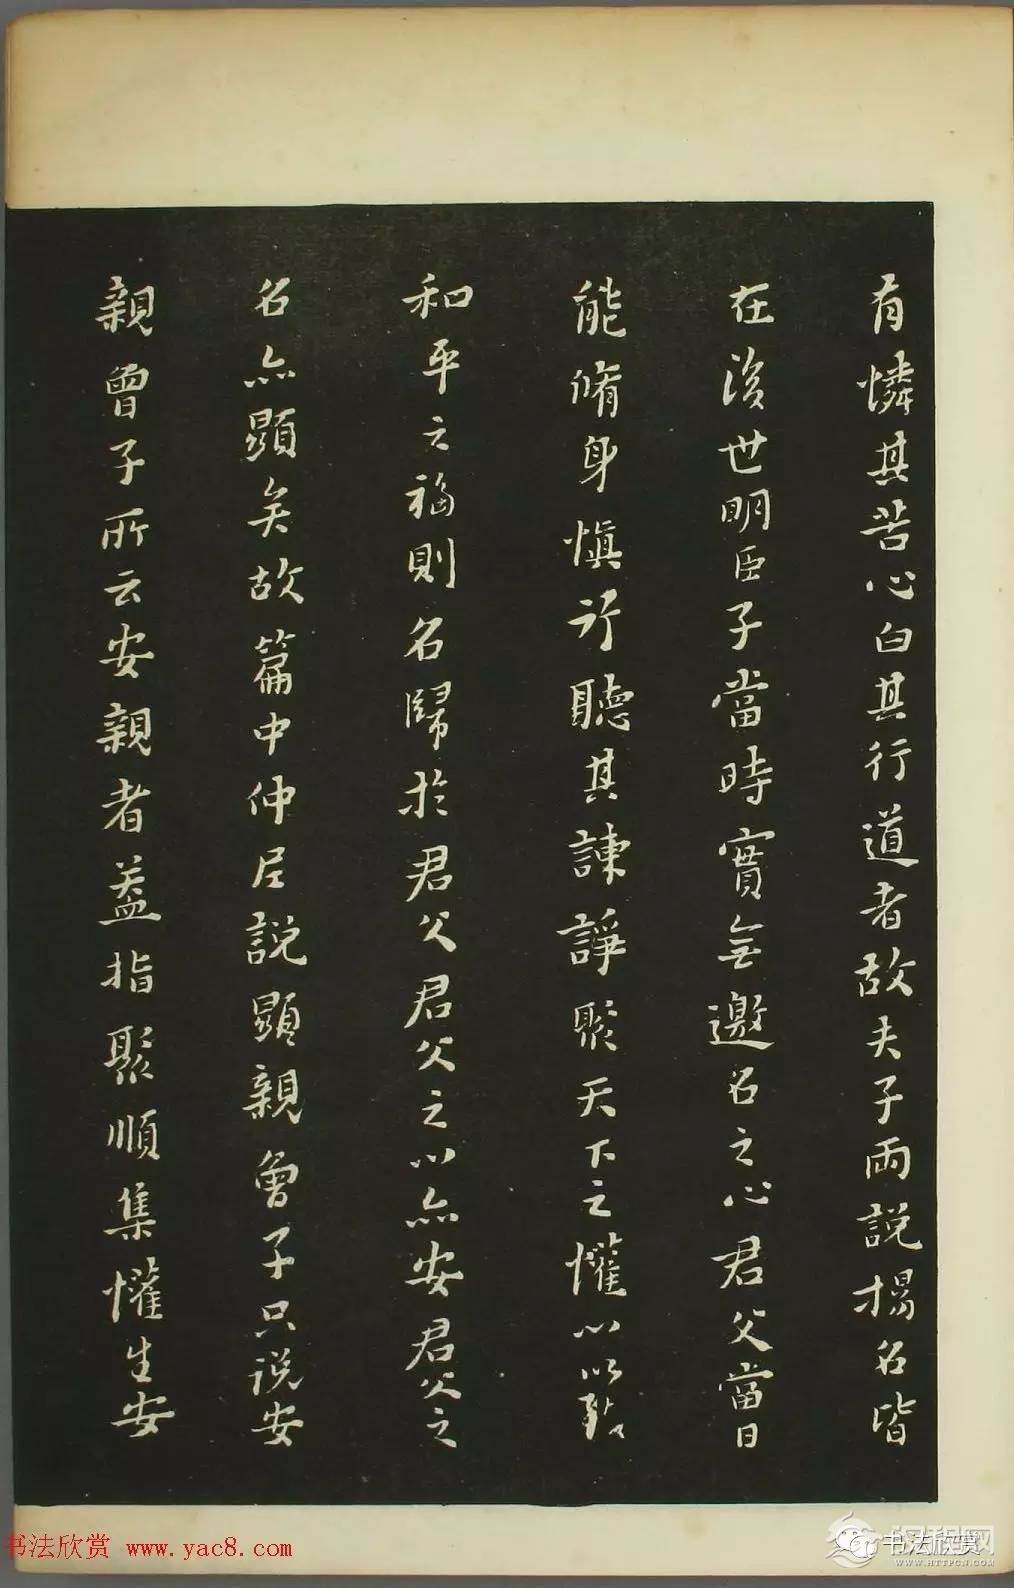 有憐其苦心白其行道者故夫子兩説揚名皆
在後世明臣子當時實無邀名之心君父當日
能脩身慎行聽其諫諍聚天下之懽心以致
和平之福則名歸於君父君父之心亦安君父之
名亦顯矣故篇中仲尼説顯親曾子只説安
親曾子所云安親者蓋指聚順集懽生安
书法欣赏 www.yac8.com
汉程网
书法欣赏
WWW.HTTPCN.COM